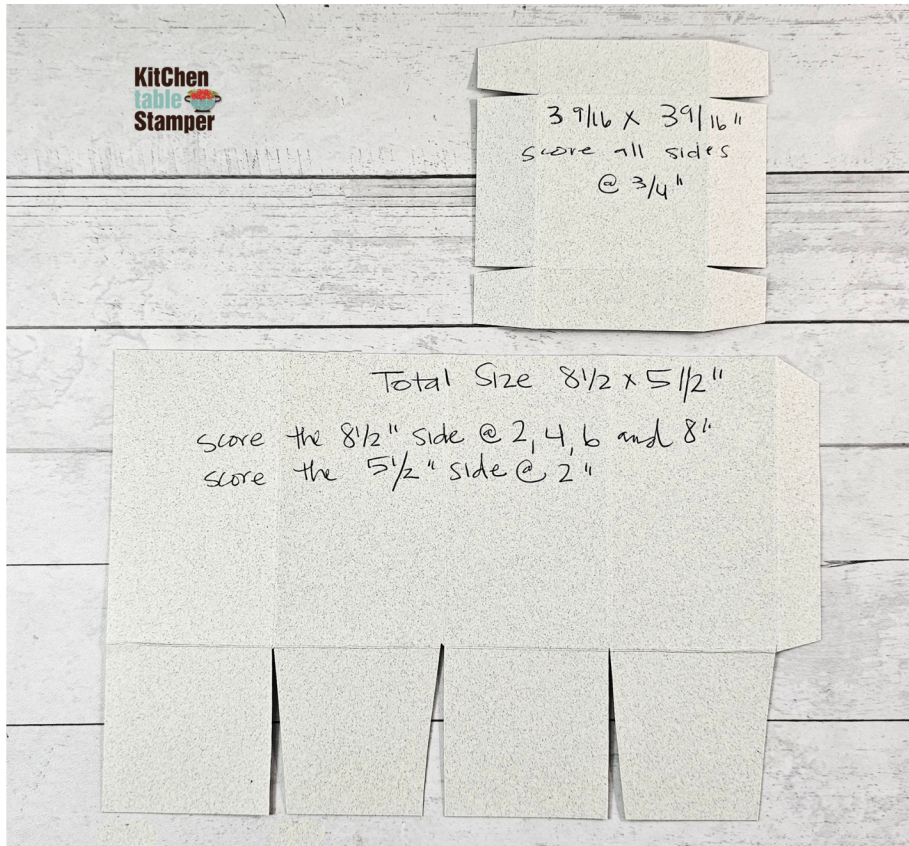 KitChen
table
Stamper
3 9/16 x 3 9/16"
score all sides
@ 3/4"
Total Size 8 1/2 x 5 1/2"
score the 8 1/2" side @ 2, 4, 6 and 8"
score the 5 1/2" side @ 2"